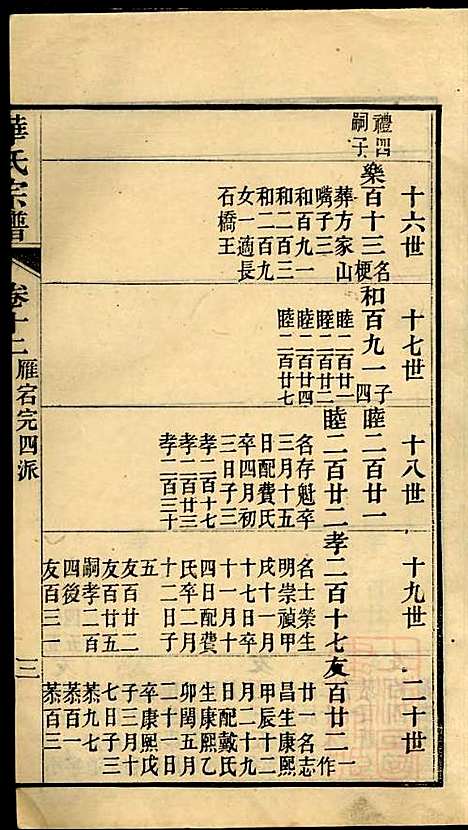 十六世
十七世
十八世
十九世
二十世
禮四
嗣子
樂百十三名梗
葬方家山
嘴子三
和百九一
和二百三
和二百九
女一適長
石橋王
和百九一子四
睦二百廿一
睦二百廿二
睦二百廿四
睦二百廿七
睦二百廿一
睦二百廿二
名存魁卒
三月十五
日配費氏
卒四月初
三日子三
孝二百十七
孝二百廿三
孝二百三十
孝二百十七
名士榮生
明崇禎甲
戌十一月
十七日卒
十一月十
四日配費
氏卒二月
十二日子
五
友百廿二
友百廿五
嗣孝二百
四後
友百三一
友百廿二一作
廿一名志
昌生康熙
甲辰十二
月二十九
日配戴氏
生康熙乙
卯閏五月
二十一日
卒康熙戊
子三月十
七日子三
恭九七
恭百一
恭百三
華氏宗譜
卷十二
雁宕完四派
三